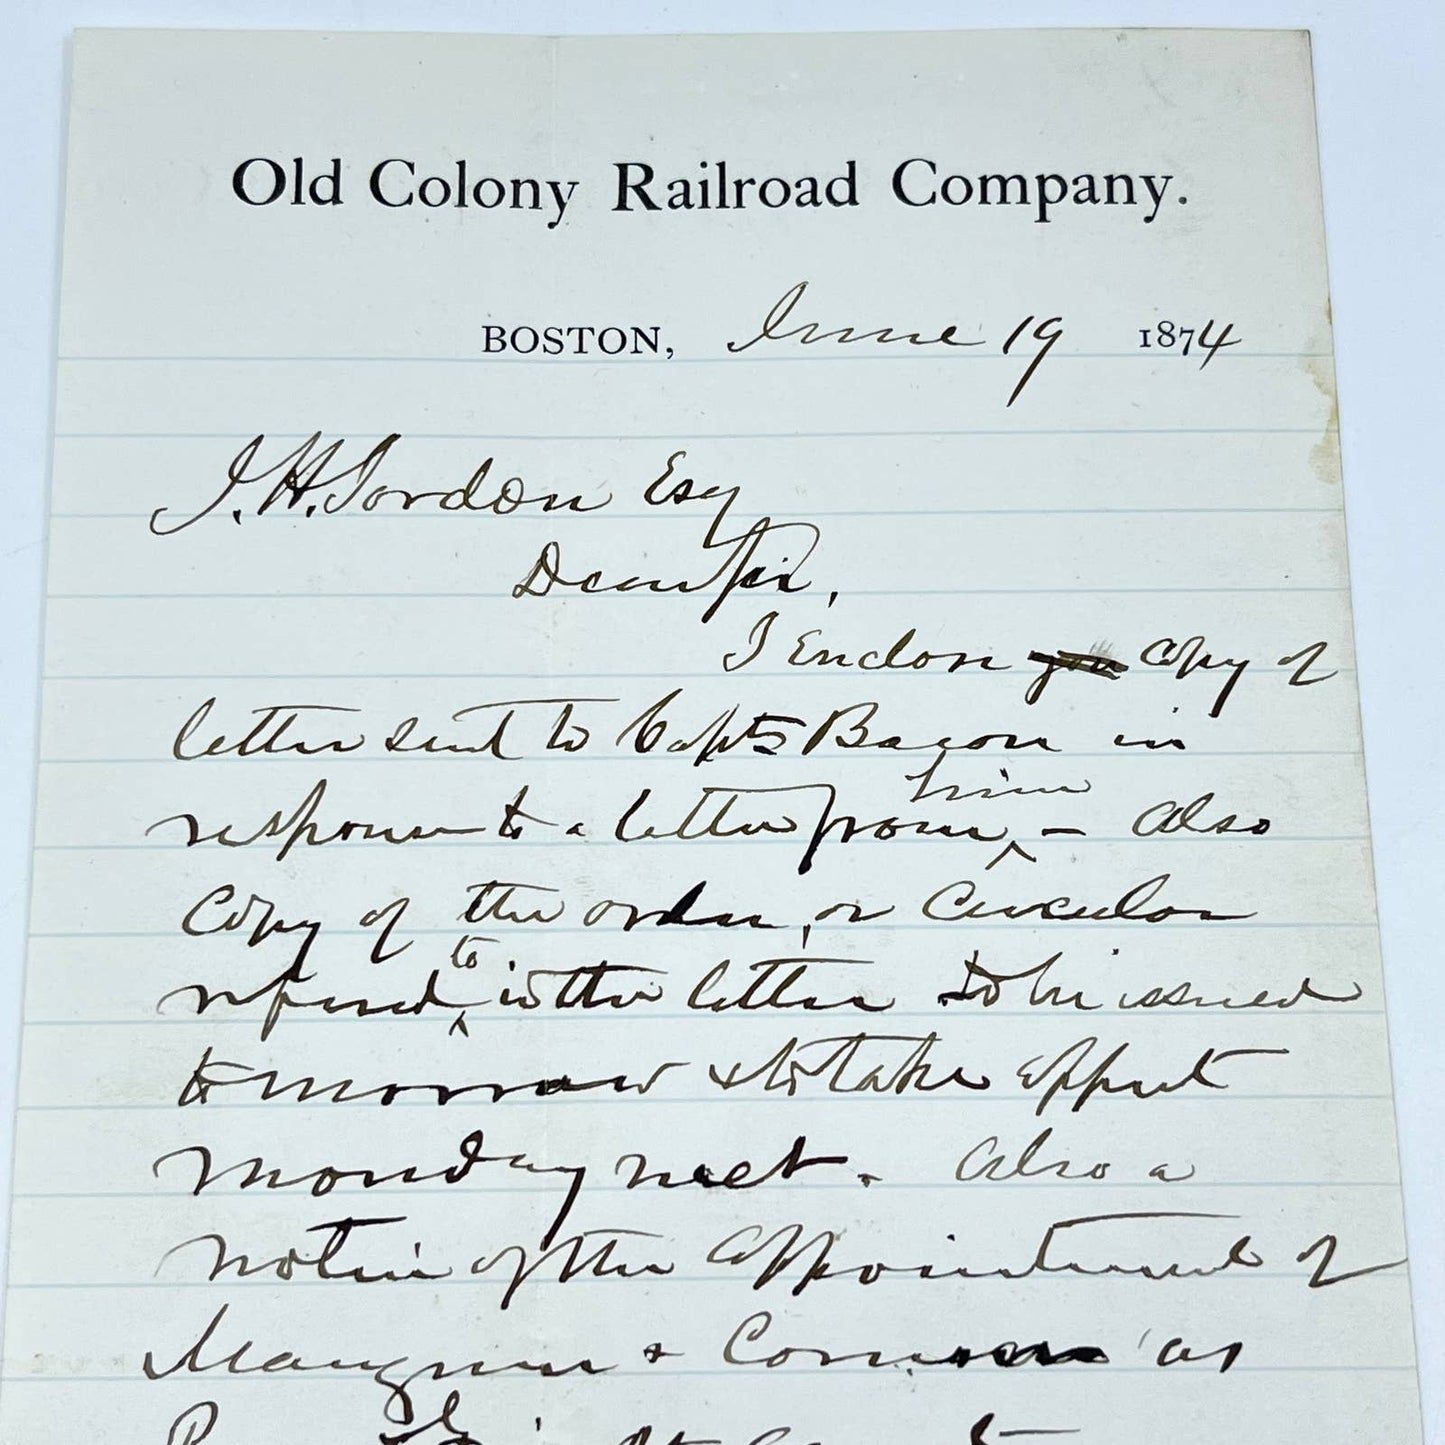 Old Colony Railroad Company.
BOSTON, June 19 1874
J. H. Jordon Esq
Dear Sir,
I Enclose you copy of
letter sent to Capt Bacon in
response to a letter from him – Also
Copy of the order, or Circular
referred to in the letter to be issued
tomorrow & to take effect
Monday next. Also a
notice of the appointment of
& as